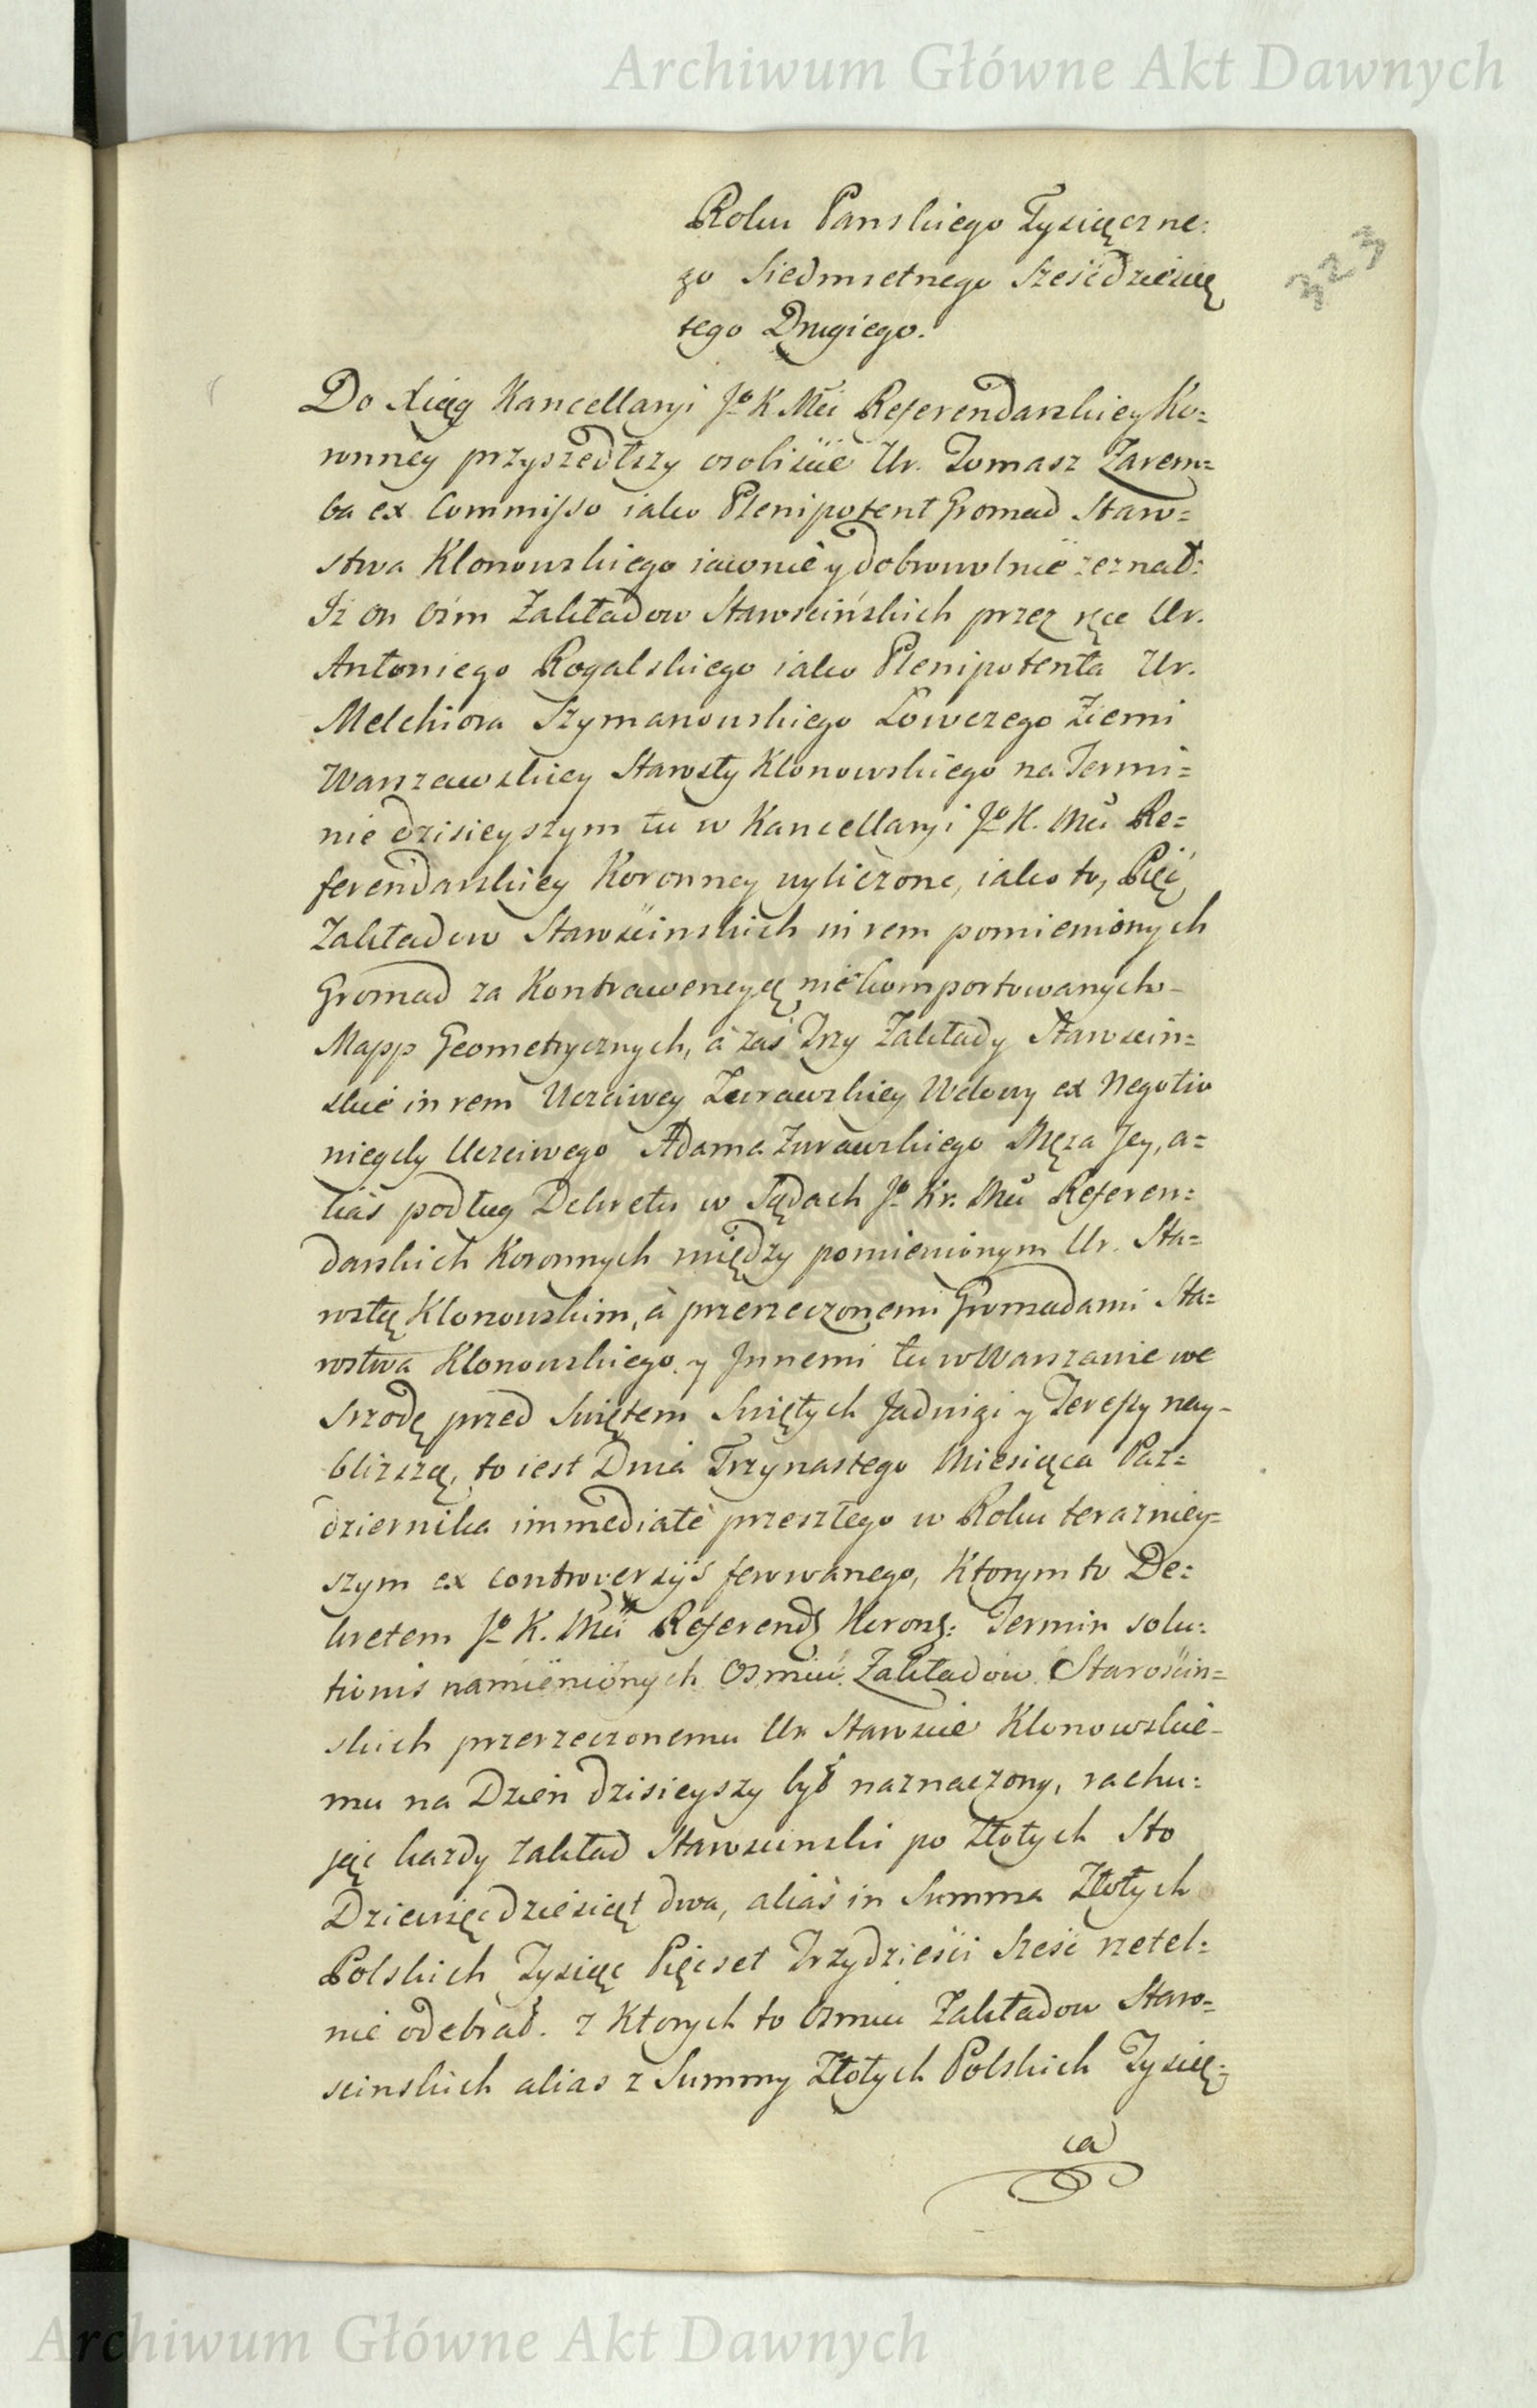 Archiwum Główne Akt Dawnych
323
Roku Panskiego Tysiączne:
go Siedmsetnego Sześćdziesią
tego Drugiego.
Do Xiąg Kancellaryi Jo K Mci Referendarskiey Ko=
ronney przyszedłszy osobiscie Ur. Tomasz Zarem=
ba ex Commisso iako Plenipotent Gromad Staro=
stwa Klonowskiego iawnie y dobrowolnie zeznał:
Iż on osm Zakładow Starościńskich przez ręce Ur.
Antoniego Rogalskiego iako Plenipotenta Ur.
Melchiora Szymanowskiego Łowczego Ziemi
Warszawskiey Starosty Klonowskiego na Termi=
nie dzisieyszym tu w Kancellaryi Jo K. Mci Re=
ferendarskiey Koronney wyliczone, iako to, Pięć
Zakładow Starościnskich in rem pomienionych
Gromad za Kontrawencyą nie komportowanych
Mapp Geometrycznych, à zaś Trzy Zakłady Starościn=
skie in rem Uczciwey Zurawskiey Wdowy ex Negotio
niegdy Uczciwego Adama Zurawskiego Męza Jey, a=
lias podług Dekretu w Sądach Jo Kr. Mci Referen=
darskich Koronnych między pomienionym Ur. Sta=
rostą Klonowskim, à przerzeczonemi Gromadami Sta=
rostwa Klonowskiego y Jnnemi tu w Warszawie we
Srzodę przed Swiętem Swiętych Jadwigi y Teressy nay-
bliższą, to iest Dnia Trzynastego Miesiąca Paź=
dziernika immediate przeszłego w Roku terazniey=
szym ex controversijs ferowanego, Ktorym to De=
kretem Jo K. Mci Referend: Koron: Termin solu=
tionis namienionych Osmiu Zakładow Starościn=
skich przerzeczonemu Ur Staroscie Klonowskie-
mu na Dzień dzisieyszy był naznaczony, rachu=
jąc kazdy zakład Starościnski po Złotych Sto
Dziewięćdziesiąt dwa, alias in Summa Złotych
Polskich Tysiąc Pięcset Trzydzieści Sześć rzetel=
nie odebrał. Z Ktorych to Osmiu Zakładow Staro=
scinskich alias z Summy Złotych Polskich Tysią=
ca
Archiwum Główne Akt Dawnych